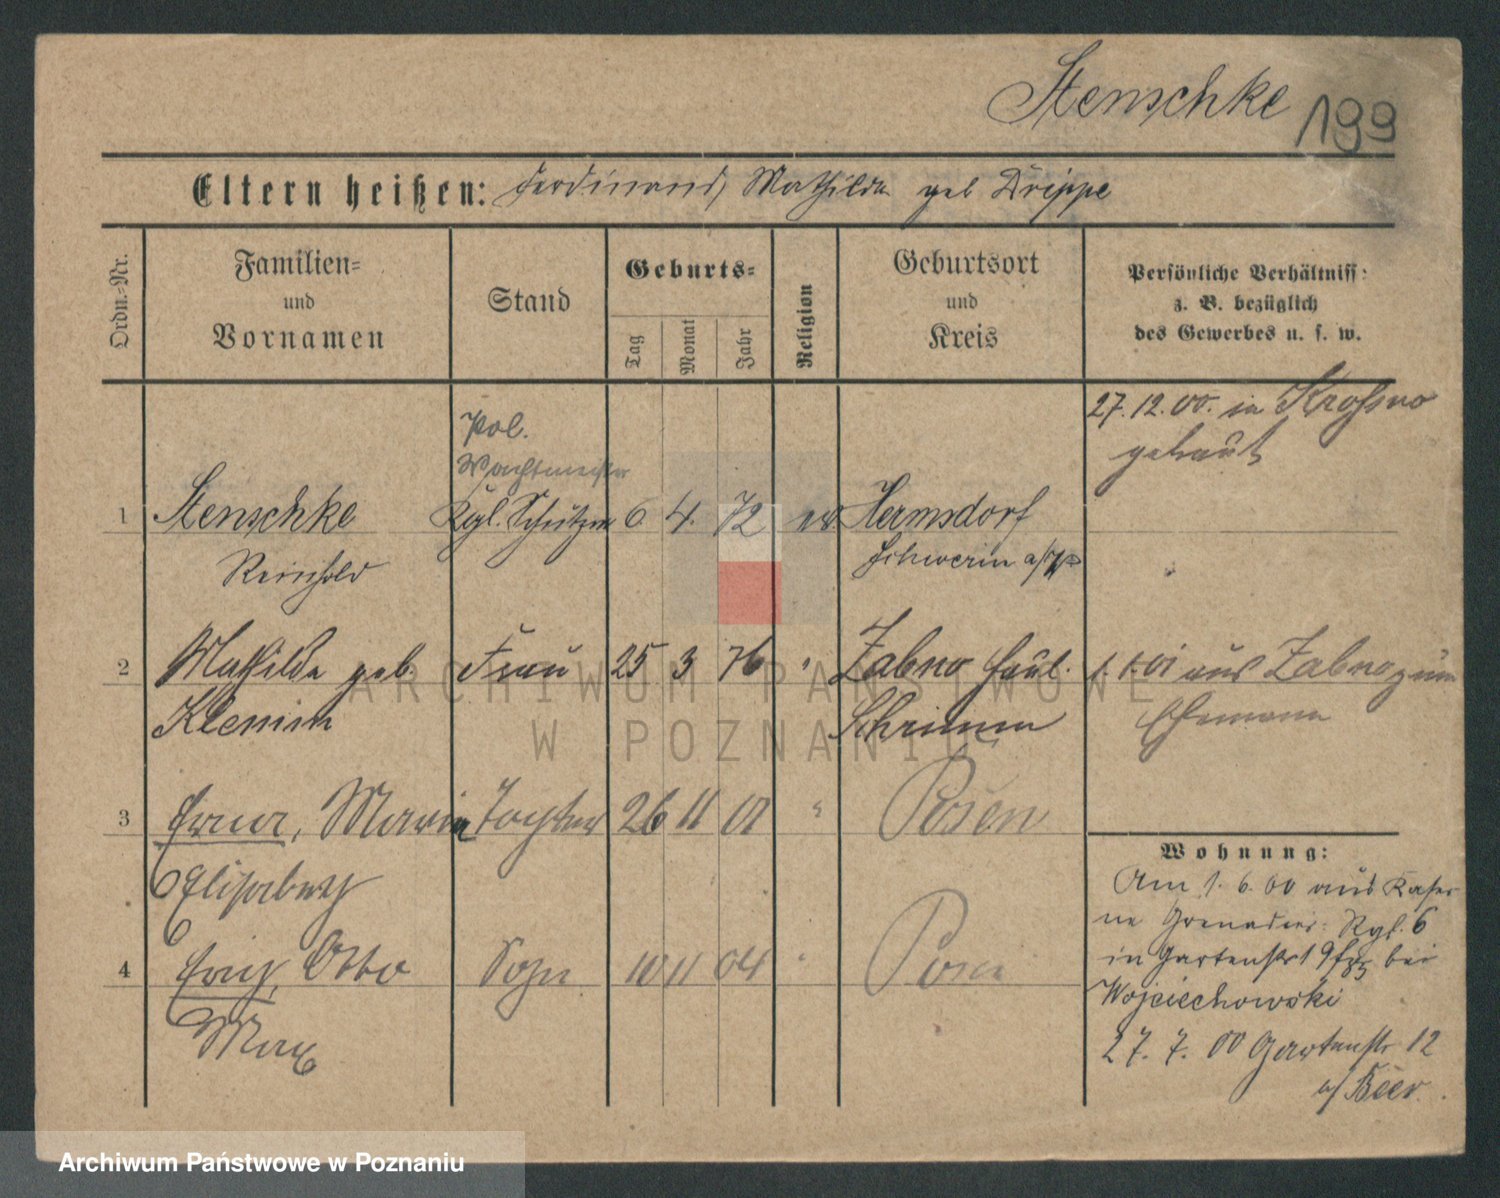 Stenschke 199
Eltern heißen: Ferdinand, Mathilde geb Drippe
Ordn.-Nr.
Familien-
und
Vornamen
Stand
Geburts-
Tag
Monat
Jahr
Religion
Geburtsort
und
Kreis
Persönliche Verhältniss:
z. B. bezüglich
des Gewerbes u. s. w.
27.12.00. in Krossno
getraut
Pol.
Wachtmeister
1 Stenschke Kgl. Schutzm 6 4. 72 ev Hermsdorf
Reinhold Schwerin a/W
2 Mathilde geb Frau 25 3 76 " Zabno Haul.
Klemm Schrimm
1. 1 01 aus Zabno zum
Ehemann
3 Erna, Maria Tochter 26 11 01 " Posen
Elisabeth
4 Erich, Otto Sohn 10 11 04 " Posen
Max
Wohnung:
Am 1. 6. 00 aus Kaser
ne Grenadier. Rgl. 6
in Gartenstr bei
Wojciechowski
27. 7. 00 Gartenstr 12
a/ Beer.
ARCHIWUM PAŃSTWOWE
W POZNANIU
Archiwum Państwowe w Poznaniu